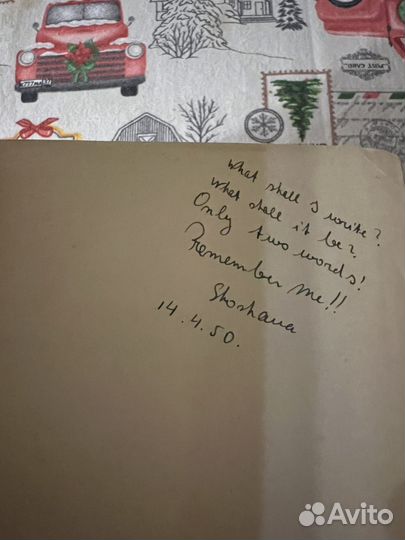 POST CARD
what shall I write?
what shall it be?
Only two words!
Remember me!!
Shoshana
14.4.50.
Avito